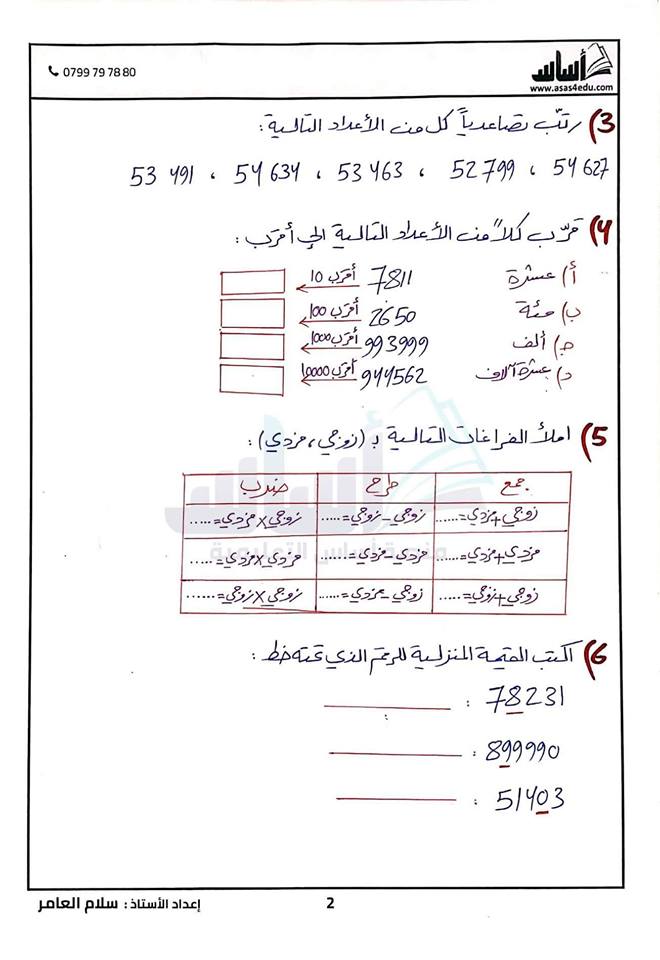 أساس
www.asas4edu.com
0799 79 78 80
3) رتّب تصاعدياً كل من الأعداد التالية :
54 627 ، 52 799 ، 53 463 ، 54 634 ، 53 491
4) قرّب كلاً من الأعداد التالية إلى أقرب :
أ) عشرة 7811 أقرب 10
ب) مئة 2650 أقرب 100
ج) ألف 993999 أقرب 1000
د) عشرة آلاف 944562 أقرب 10000
5) املأ الفراغات التالية بـ (زوجي ، فردي) :
جمع طرح ضرب
زوجي + فردي =...... زوجي - زوجي =...... زوجي × فردي =......
فردي + فردي =...... فردي - فردي =...... فردي × فردي =......
زوجي + زوجي =...... زوجي - فردي =...... زوجي × زوجي =......
6) اكتب القيمة المنزلية للرقم الذي تحته خط :
78231 :
899990 :
51403 :
2
إعداد الأستاذ : سلام العامر
أساس
منصة أساس التعليمية